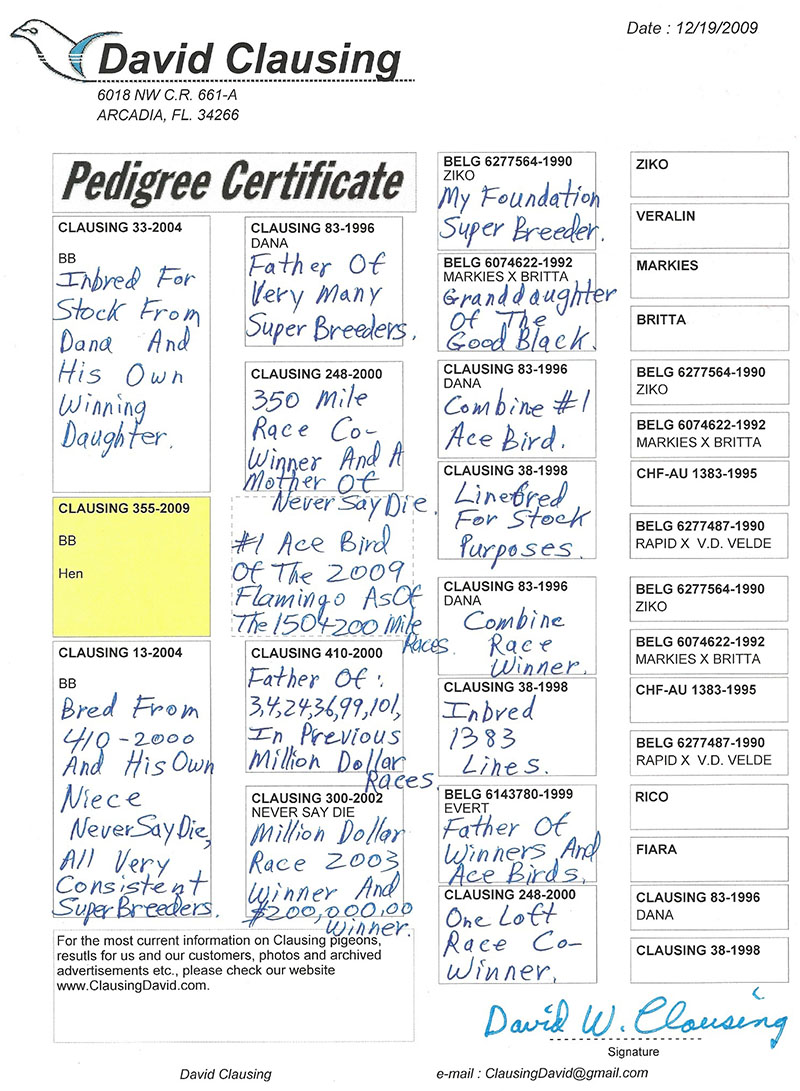 David Clausing
6018 NW C.R. 661-A
ARCADIA, FL. 34266
Date : 12/19/2009
Pedigree Certificate
CLAUSING 33-2004
BB
Inbred For
Stock From
Dana And
His Own
Winning
Daughter.
CLAUSING 355-2009
BB
Hen
CLAUSING 13-2004
BB
Bred From
410-2000
And His Own
Niece
Never Say Die,
All Very
Consistent
Super Breeders.
CLAUSING 83-1996
DANA
Father Of
Very Many
Super Breeders.
CLAUSING 248-2000
350 Mile
Race Co-
Winner And A
Mother Of
Never Say Die.
#1 Ace Bird
Of The 2009
Flamingo As Of
The 150+200 Mile
Races.
CLAUSING 410-2000
Father Of:
3,4,24,36,99,101,
In Previous
Million Dollar
Races.
CLAUSING 300-2002
NEVER SAY DIE
Million Dollar
Race 2003
Winner And
$200,000.00
Winner.
BELG 6277564-1990
ZIKO
My Foundation
Super Breeder.
BELG 6074622-1992
MARKIES X BRITTA
Granddaughter
Of The
Good Black.
CLAUSING 83-1996
DANA
Combine #1
Ace Bird.
CLAUSING 38-1998
Linebred
For Stock
Purposes.
CLAUSING 83-1996
DANA
Combine
Race
Winner.
CLAUSING 38-1998
Inbred
1383
Lines.
BELG 6143780-1999
EVERT
Father Of
Winners And
Ace Birds.
CLAUSING 248-2000
One Loft
Race Co-
Winner.
ZIKO
VERALIN
MARKIES
BRITTA
BELG 6277564-1990
ZIKO
BELG 6074622-1992
MARKIES X BRITTA
CHF-AU 1383-1995
BELG 6277487-1990
RAPID X V.D. VELDE
BELG 6277564-1990
ZIKO
BELG 6074622-1992
MARKIES X BRITTA
CHF-AU 1383-1995
BELG 6277487-1990
RAPID X V.D. VELDE
RICO
FIARA
CLAUSING 83-1996
DANA
CLAUSING 38-1998
For the most current information on Clausing pigeons,
resutls for us and our customers, photos and archived
advertisements etc., please check our website
www.ClausingDavid.com.
David W. Clausing
Signature
David Clausing
e-mail : ClausingDavid@gmail.com